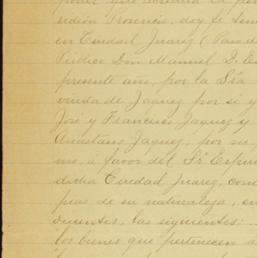 poder que
redión Provencio, doy fe
en Ciudad Juarez (Paso de
Público Don Manuel D. Es
presente año, por la Sra
viuda de Jaquez por si y
José y Francisco Jaquez y
Anastasio Jaquez, por su
á favor del Sr Espin
dicha Ciudad Juarez, con
pias de su naturaleza, en
ducentes, las siguientes:
los bienes que pertenecen a